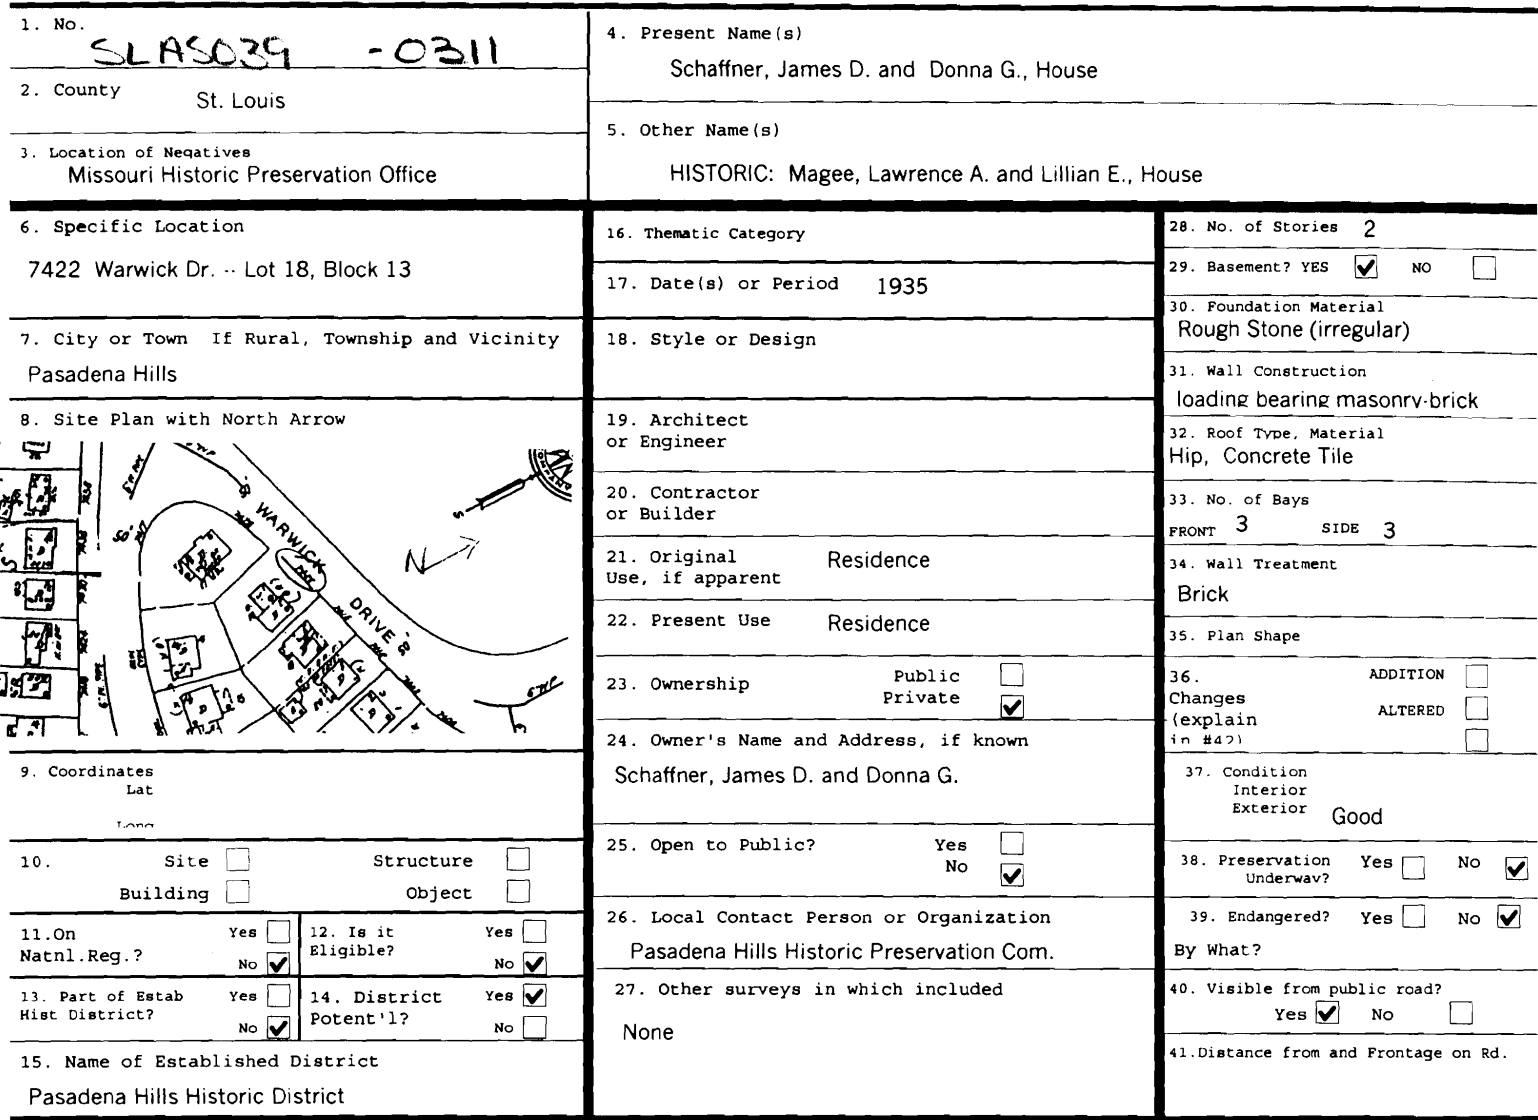 1. No.
SLAS039 -0311
2. County
St. Louis
3. Location of Negatives
Missouri Historic Preservation Office
4. Present Name(s)
Schaffner, James D. and Donna G., House
5. Other Name(s)
HISTORIC: Magee, Lawrence A. and Lillian E., House
6. Specific Location
7422 Warwick Dr. -- Lot 18, Block 13
7. City or Town If Rural, Township and Vicinity
Pasadena Hills
8. Site Plan with North Arrow
WARWICK
DRIVE
N
S
9. Coordinates
Lat
Long
10. Site Structure
Building Object
11.On Yes
Natnl.Reg.? No ✔
12. Is it Yes
Eligible? No ✔
13. Part of Estab Yes
Hist District? No ✔
14. District Yes ✔
Potent'l? No
15. Name of Established District
Pasadena Hills Historic District
16. Thematic Category
17. Date(s) or Period 1935
18. Style or Design
19. Architect
or Engineer
20. Contractor
or Builder
21. Original Residence
Use, if apparent
22. Present Use Residence
23. Ownership Public
Private ✔
24. Owner's Name and Address, if known
Schaffner, James D. and Donna G.
25. Open to Public? Yes
No ✔
26. Local Contact Person or Organization
Pasadena Hills Historic Preservation Com.
27. Other surveys in which included
None
28. No. of Stories 2
29. Basement? YES ✔ NO
30. Foundation Material
Rough Stone (irregular)
31. Wall Construction
loading bearing masonry-brick
32. Roof Type, Material
Hip, Concrete Tile
33. No. of Bays
FRONT 3 SIDE 3
34. Wall Treatment
Brick
35. Plan Shape
36. ADDITION
Changes
(explain ALTERED
in #42)
37. Condition
Interior
Exterior Good
38. Preservation Yes No ✔
Underway?
39. Endangered? Yes No ✔
By What?
40. Visible from public road?
Yes ✔ No
41.Distance from and Frontage on Rd.